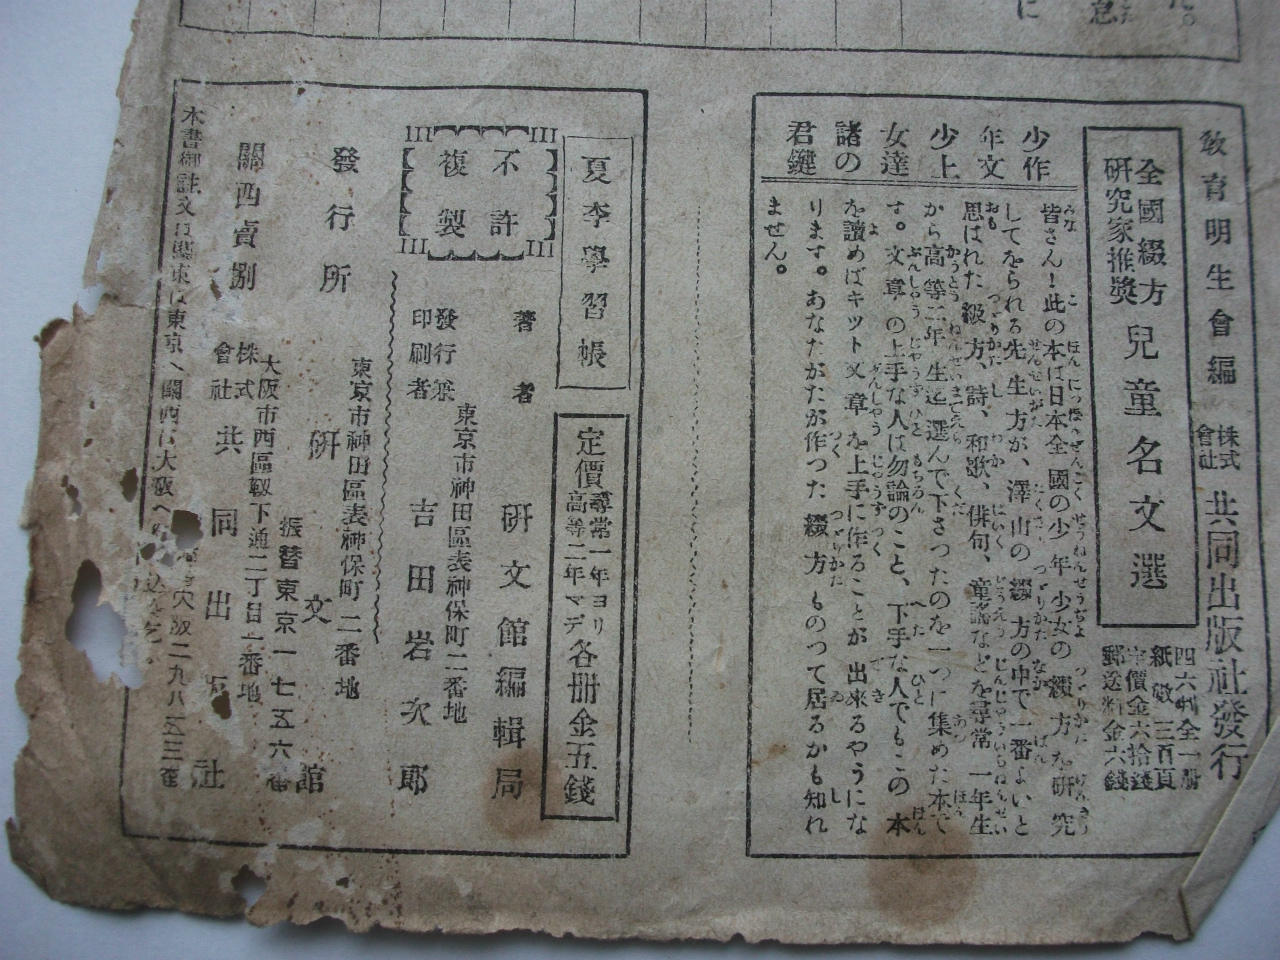 た。
急
に
敎育明生會編
株式會社 共同出版社發行
全國綴方研究家推奬 兒童名文選
四六判全一册
紙數三百頁
定價金六拾錢
郵送料金六錢
少年少女諸君の作文上達の鍵
皆さん！此の本は日本全國の少年少女の綴方を研究
してをられる先生方が、澤山の綴方の中で一番よいと
思はれた綴方、詩、和歌、俳句、童謠などを尋常一年生
から高等二年生迄選んで下さつたのを一つに集めた本で
す。文章の上手な人は勿論のこと、下手な人でもこの本
を讀めばキット文章を上手に作ることが出來るやうにな
ります。あなたがたが作つた綴方ものつて居るかも知れ
ません。
夏季學習帳
定價 尋常一年ヨリ高等二年マデ 各册金五錢
不許複製
著者 硏文館編輯局
東京市神田區表神保町二番地
發行兼印刷者 吉田岩次郎
東京市神田區表神保町二番地
發行所 硏文館
振替東京一七五六番
大阪市西區靱下通二丁目二番地
關西賣捌 株式會社 共同出版社
本書御註文は關東は東京へ關西は大阪へ